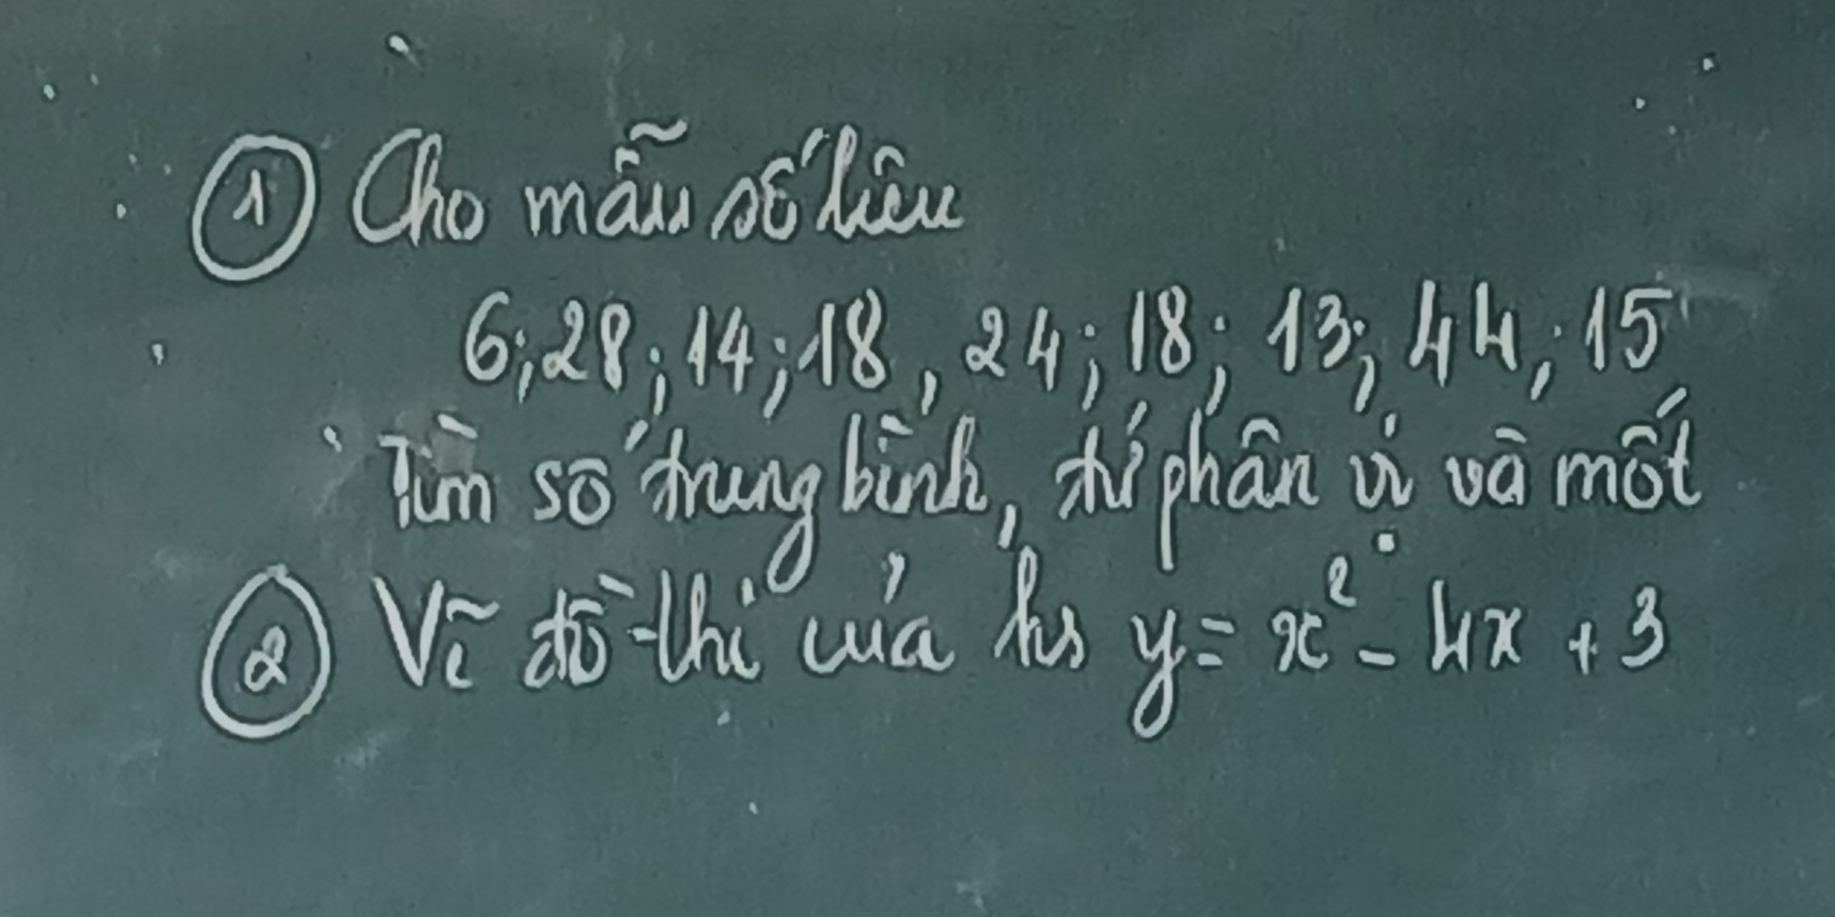 ① Cho mẫu số liêu
6; 28; 14; 18, 24; 18; 13; 44; 15
Tìm số trung bình, tứ phân vị và mốt
② Vẽ đồ thị của hs y = x² - 4x + 3